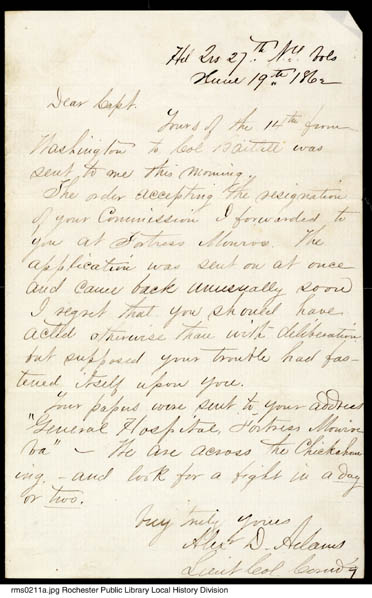 Hd Qrs 27th N.Y. Vols
June 19th 1862
Dear Capt.
Yours of the 14th from
Washington to Col Bartlett was
sent to me this morning.
The order accepting the resignation
of your Commission I forwarded to
you at Fortress Monroe. The
application was sent on at once
and came back unusually soon
I regret that you should have
acted otherwise than with deliberation
but supposed your trouble had fas-
tened itself upon you.
Your papers were sent to your address
"General Hospital, Fortress Monroe
Va" - We are across the Chickahom
iny - and look for a fight in a day
or two.
Very truly yours
Alex D. Adams
Lieut Col Comd'g
rms0211a.jpg Rochester Public Library Local History Division